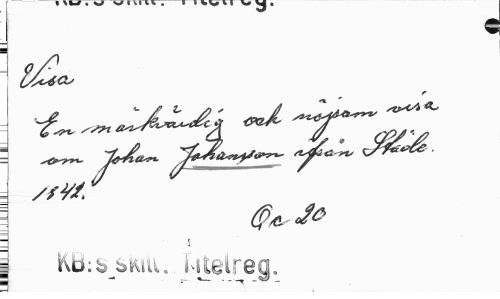 KB:s skill. Titelreg.
Visa
En märkvärdig och nöjsam visa
om Johan Johansson ifrån Stöde.
1842.
Qc 20
KB:s skill. Titelreg.